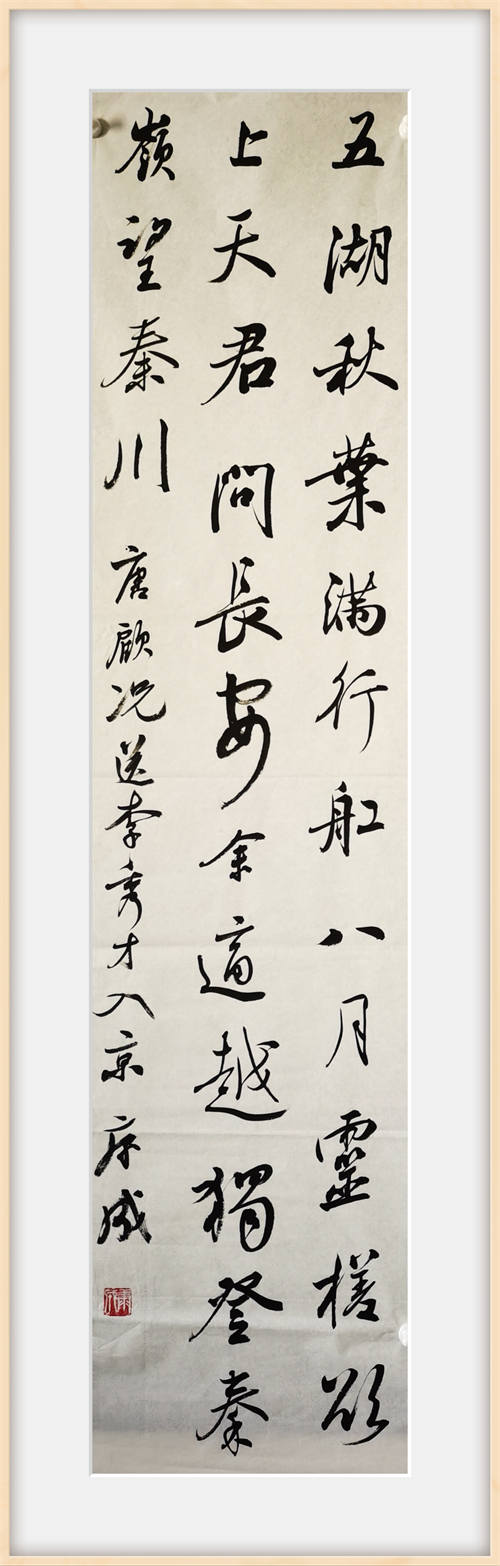 五湖秋葉滿行舡八月靈槎欲
上天君問長安余適越獨登秦
嶺望秦川 唐顧況送李秀才入京 成